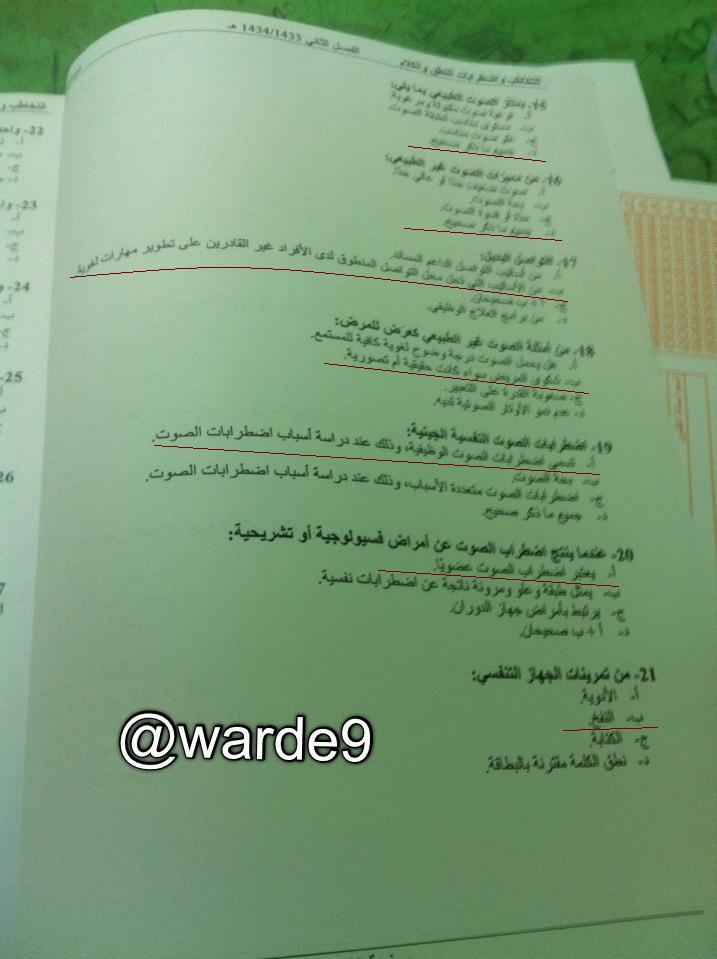 التخاطب واضطرابات النطق والكلام
الفصل الثاني 1434/1433 هـ
15- يمتاز الصوت الطبيعي بما يلي:
أ. نوعية صوت مقبولة ومرغوبة.
ب. مستوى مناسب لطبقة الصوت.
ج. علو صوت مناسب.
د. جميع ما ذكر صحيح.
16- من مميزات الصوت غير الطبيعي:
أ. صوت ضعيف جدًا أو عالي جدًا.
ب. بحة الصوت.
ج. حدة أو الصوت.
د. جميع ما ذكر صحيح.
17- التواصل البديل:
أ. من أساليب التواصل الداعم المساند.
ب. من الأساليب التي تحل محل التواصل المنطوق لدى الأفراد غير القادرين على تطوير مهارات لغوية
ج. أ + ب صحيحان.
د. من برامج العلاج الوظيفي.
18- من أمثلة الصوت غير الطبيعي كعرض للمرض:
أ. هل يحمل الصوت درجة وضوح لغوية كافية للمستمع.
ب. شكوى المريض سواء كانت حقيقية أم تصورية.
ج. صعوبة القدرة على التعبير.
د. عدم نمو الأوتار الصوتية لديه.
19- اضطرابات الصوت النفسية الجينية:
أ. تسمى اضطرابات الصوت الوظيفية، وذلك عند دراسة أسباب اضطرابات الصوت.
ب. بحة الصوت.
ج. اضطرابات الصوت متعددة الأسباب، وذلك عند دراسة أسباب اضطرابات الصوت.
د. جميع ما ذكر صحيح.
20- عندما ينتج اضطراب الصوت عن أمراض فسيولوجية أو تشريحية:
أ. يعتبر اضطراب الصوت عضويًا.
ب. يمثل طبقة وعلو ومرونة ناتجة عن اضطرابات نفسية.
ج. يرتبط بأمراض جهاز الدوران.
د. أ + ب صحيحان.
21- من تمرينات الجهاز التنفسي:
أ. الأدوية.
ب. النفخ.
ج. الكتابة.
د. نطق الكلمة مقترنة بالبطاقة.
@warde9
التخاطب و
22- واحد
23- وا
24-
25-
26